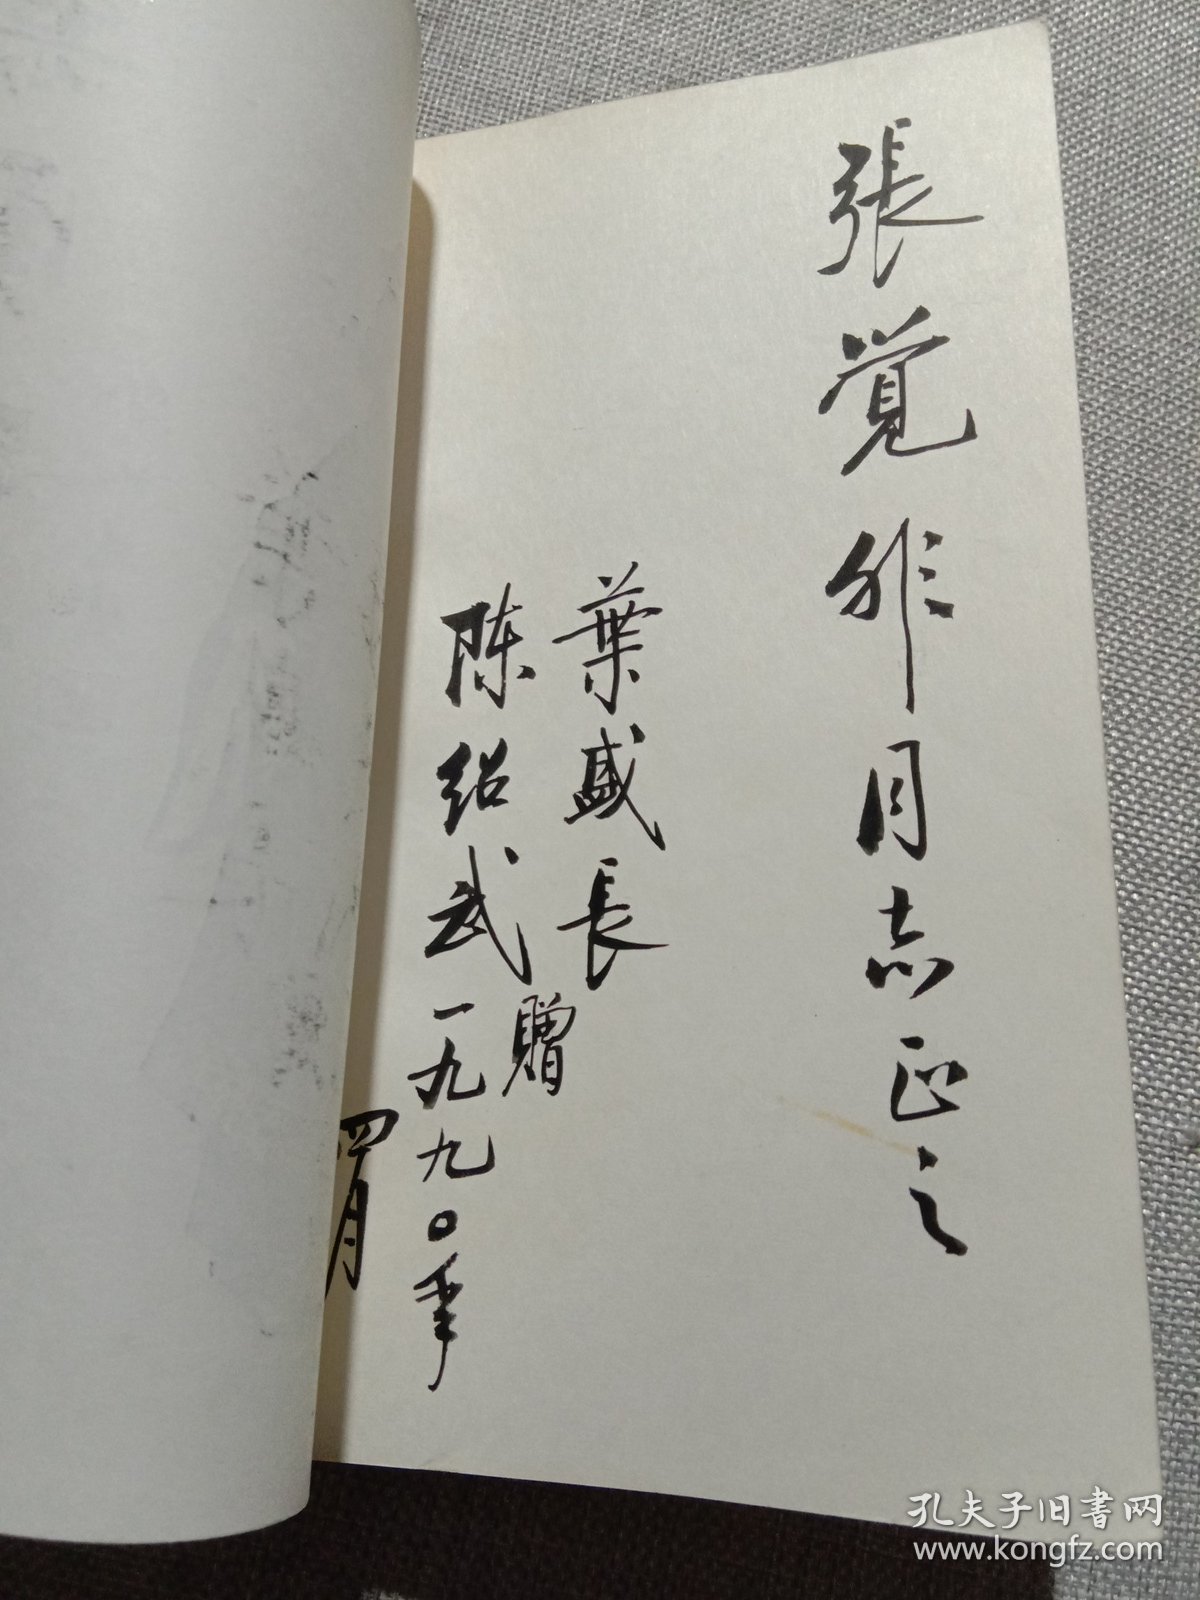 張覚非同志正之
葉盛長
陈绍武
贈
一九九〇年
四月
孔夫子旧书网
www.kongfz.com